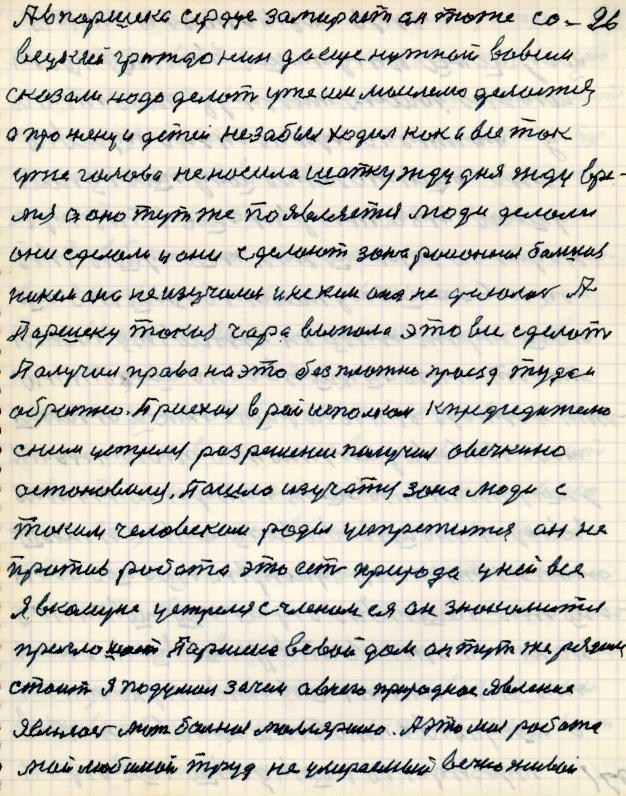 А впаршека сердце замирает он тоже со- 26
вецкий гражданин да еще нужный вовсем
сказали надо делат уже им мыслемо делается
а про няну и детей незабыл ходил как и все так
уже голова неносила шапку жду дня жду вре-
мя а оно тут же появляется люди делали
они сделали и они сделают зона районная балная
никем она неизучалас и неким она не делалас А
Паршеку такая чара выпала это все сделат
Получил права на это безплатно проезд туда и
обратно. Приехал в райисполком к председателю
сним устрелся разрешение получил овечкино
астоновился. Пашло изучатся зона люди с
таким человеком рады устретится он не
против робота это ест природа у ней все
Я вкамуне устрелся с членам ея он знакомится
пришло Паршека всвой дом он тут же рядом
стоит Я подумал зачем авчего природное явление
являлас мат балная маллярию. А это моя робота
мой любимый труд не умираемый вечно живой